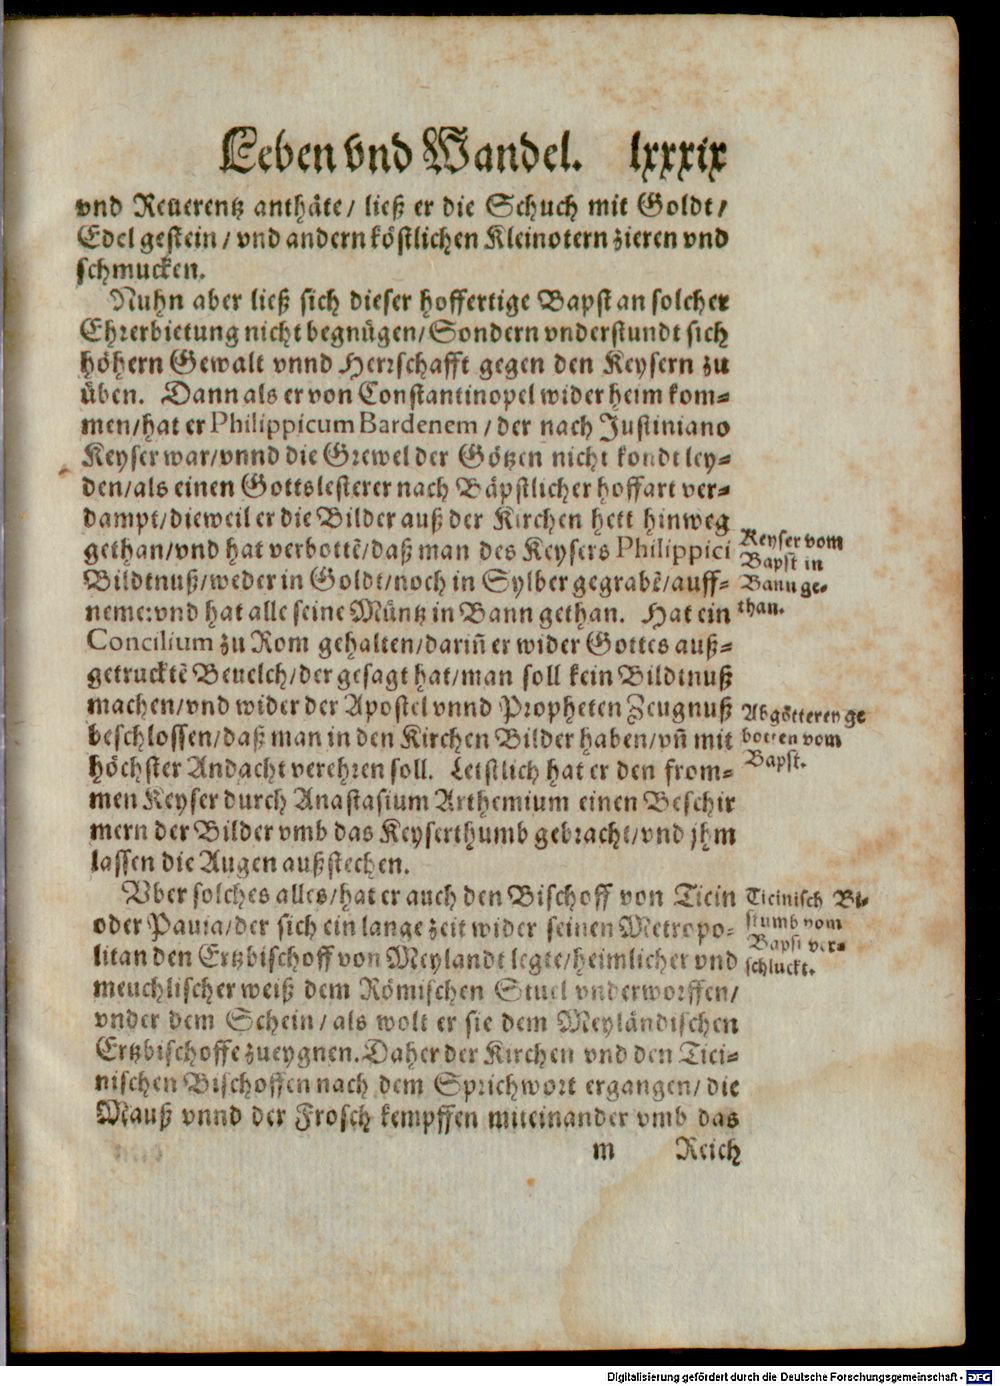 Leben vnd Wandel. lxxxix
vnd Reuerentz anthäte/ ließ er die Schuch mit Goldt/
Edel gestein/ vnd andern köstlichen Kleinotern zieren vnd
schmucken.
Nuhn aber ließ sich dieser hoffertige Bapst an solcher
Ehrerbietung nicht begnügen/ Sondern vnderstundt sich
höhern Gewalt vnnd Herrschafft gegen den Keysern zu
üben. Dann als er von Constantinopel wider heim kom-
men/ hat er Philippicum Bardenem/ der nach Justiniano
Keyser war/ vnnd die Grewel der Götzen nicht kondt ley-
den/ als einen Gottslesterer nach Bäpstlicher hoffart ver-
dampt/ dieweil er die Bilder auß der Kirchen hett hinweg
gethan/ vnd hat verbottē/ daß man des Keysers Philippici
Bildtnuß/ weder in Goldt/ noch in Sylber gegrabē/ auff-
neme: vnd hat alle seine Müntz in Bann gethan. Hat ein
Concilium zu Rom gehalten/ dariñ er wider Gottes auß-
getrucktē Beuelch/ der gesagt hat/ man soll kein Bildtnuß
machen/ vnd wider der Apostel vnnd Propheten Zeugnuß
beschlossen/ daß man in den Kirchen Bilder haben/ vñ mit
höchster Andacht verehren soll. Letstlich hat er den from-
men Keyser durch Anastasium Arthemium einen Beschir
mern der Bilder vmb das Keyserthumb gebracht/ vnd jhm
lassen die Augen außstechen.
Vber solches alles/ hat er auch den Bischoff von Ticin
oder Pauia/ der sich ein lange zeit wider seinen Metropo-
litan den Ertzbischoff von Meylandt legte/ heimlicher vnd
meuchlischer weiß dem Römischen Stuel vnderworffen/
vnder dem Schein/ als wolt er sie dem Meyländischen
Ertzbischoffe zueygnen. Daher der Kirchen vnd den Tici-
nischen Bischoffen nach dem Sprichwort ergangen/ die
Mauß vnnd der Frosch kempffen miteinander vmb das
m Reich
Keyser vom
Bapst in
Bann ge-
than.
Abgötterey ge
botten vom
Bapst.
Ticinisch Bi-
stumb vom
Bapst ver-
schluckt.
Digitalisierung gefördert durch die Deutsche Forschungsgemeinschaft - DFG